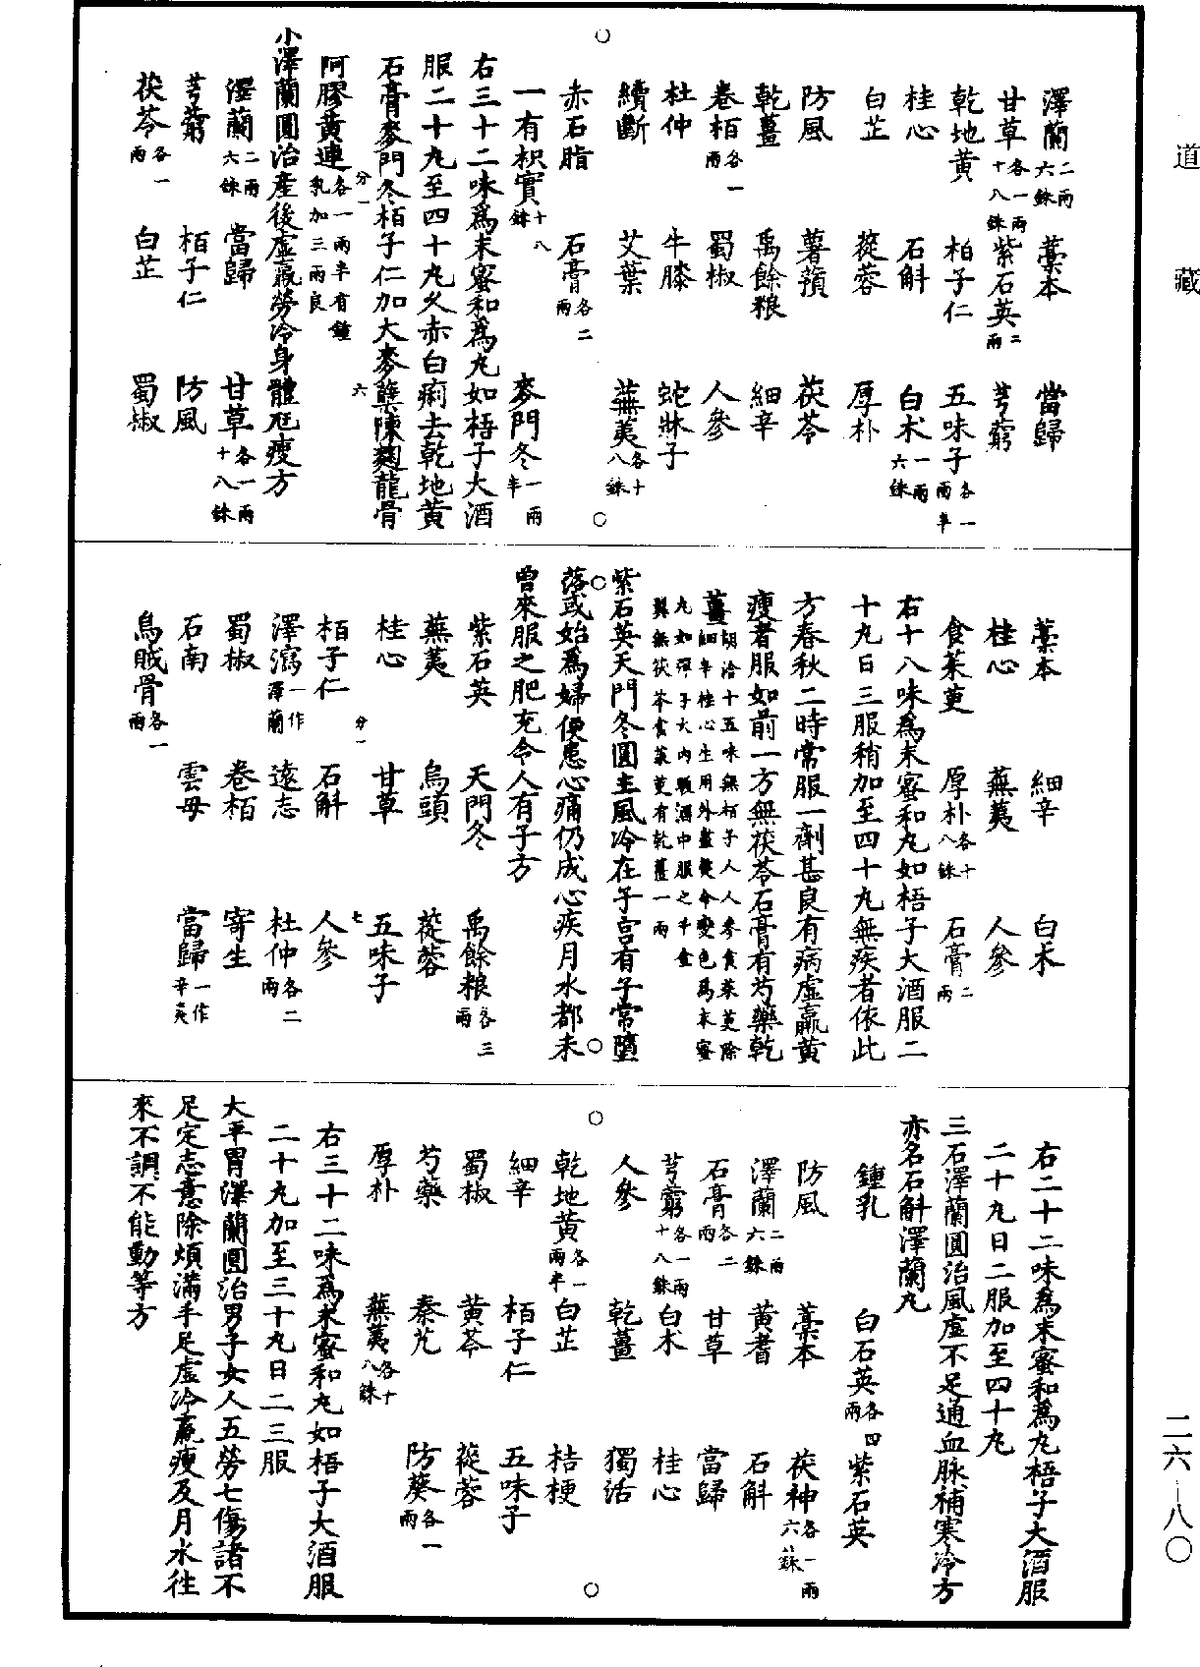 道藏
澤蘭二兩六銖 藁本 當歸
甘草各一兩十八銖 紫石英二兩 芎藭
乾地黃 柏子仁 五味子各一兩半
桂心 石斛 白朮一兩六銖
白芷 蓯蓉 厚朴
防風 薯蕷 茯苓
乾薑 禹餘粮 細辛
卷栢各一兩 蜀椒 人參
杜仲 牛膝 蛇牀子
續斷 艾葉 蕪荑各十八銖
赤石脂 石膏各二兩
一有枳實十八銖 麥門冬一兩半
右三十二味為末蜜和為丸如梧子大酒
服二十丸至四十丸久赤白痢去乾地黃
石膏麥門冬栢子仁加大麥糵陳麴龍骨
分一 六
阿膠黃連各一兩半有鍾乳加三兩良
小澤蘭圓治產後虛羸勞冷身體尫瘦方
澤蘭二兩六銖 當歸 甘草各一兩十八銖
芎藭 栢子仁 防風
茯苓各一兩 白芷 蜀椒
藁本 細辛 白朮
桂心 蕪荑 人參
食茱萸 厚朴各十八銖 石膏二兩
右十八味為末蜜和丸如梧子大酒服二
十丸日三服稍加至四十丸無疾者依此
方春秋二時常服一劑甚良有病虛羸黃
瘦者服如前一方無茯苓石膏有芍藥乾
薑胡洽十五味無栢子人人參食茱萸除細辛桂心生用外盡熬令變色為末蜜
丸如彈子大內暖酒中服之千金翼無茯苓食茱萸有乾薑一兩
紫石英天門冬圓主風冷在子宮有子常墮
落或始為婦便患心痛仍成心疾月水都未
曾來服之肥充令人有子方
紫石英 天門冬 禹餘粮各三兩
蕪荑 烏頭 蓯蓉
桂心 甘草 五味子
分一 七
栢子仁 石斛 人參
澤瀉一作澤蘭 遠志 杜仲各二兩
蜀椒 卷栢 寄生
石南 雲母 當歸一作辛夷
烏賊骨各一兩
右二十二味為末蜜和為丸梧子大酒服
二十丸日二服加至四十丸
三石澤蘭圓治風虛不足通血脉補寒冷方
亦名石斛澤蘭丸
鍾乳 白石英各四兩 紫石英
防風 藁本 茯神各一兩六銖
澤蘭二兩六銖 黃耆 石斛
石膏各二兩 甘草 當歸
芎藭各一兩十八銖 白朮 桂心
人參 乾薑 獨活
乾地黃各一兩半 白芷 桔梗
細辛 栢子仁 五味子
蜀椒 黃芩 蓯蓉
芍藥 秦艽 防葵各一兩
厚朴 蕪荑各十八銖
右三十二味為末蜜和丸如梧子大酒服
二十丸加至三十丸日二三服
大平胃澤蘭圓治男子女人五勞七傷諸不
足定志意除煩滿手足虛冷羸瘦及月水往
來不調不能動等方
二六—八〇